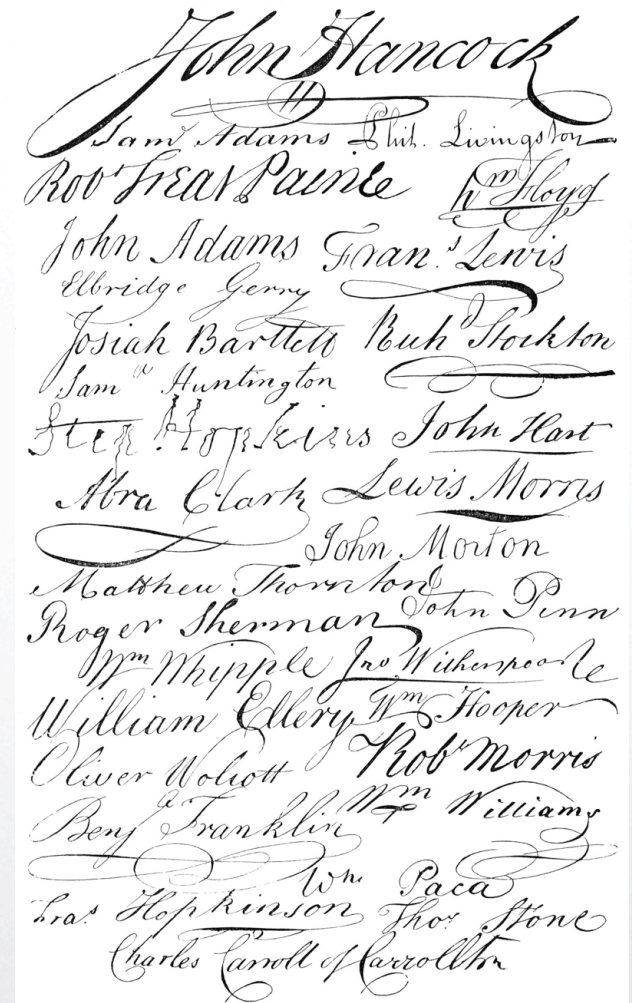 John Hancock
Sam^l Adams Phil. Livingston
Rob^t Treat Paine W^m Floyd
John Adams Fran.^s Lewis
Elbridge Gerry
Josiah Bartlett Rich^d Stockton
Sam^el Huntington
Step Hopkins John Hart
Abra Clark Lewis Morris
John Morton
Matthew Thornton John Penn
Roger Sherman
W^m Whipple Jn^o Witherspoon
William Ellery W^m Hooper
Oliver Wolcott Rob^t Morris
Benj^a Franklin W^m Williams
W^m Paca
Fra^s Hopkinson Tho^s Stone
Charles Carroll of Carrollton